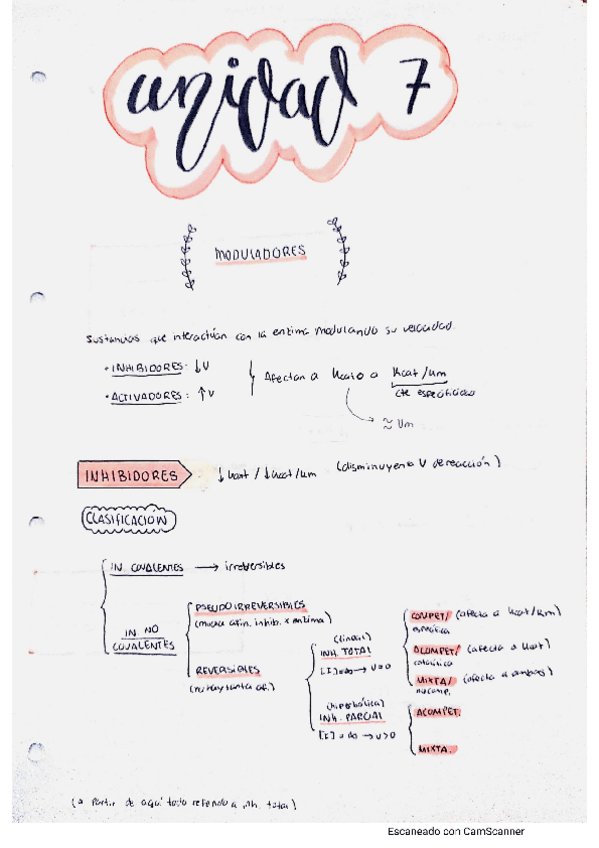 unidad 7
MODULADORES
Sustancias que interactúan con la enzima modulando su velocidad.
• INHIBIDORES: ↓V
• ACTIVADORES: ↑V
Afectan a Kcat o a Kcat/Km
cte especificidad
≈ Vm
INHIBIDORES ↓Kcat / ↓Kcat/Km (disminuyen a V de reacción)
CLASIFICACIÓN
IN. COVALENTES → irreversibles
IN NO COVALENTES
PSEUDOIRREVERSIBLES
(mucha afin. inhib. x enzima)
REVERSIBLES
(no hay tanta af.)
(lineal)
INH. TOTAL
[I] → V=0
(hiperbólica)
INH. PARCIAL
[I] → V>0
COMPET/ (afecta a Kcat/Km)
específica
ACOMPET/ (afecta a Kcat)
catalítica
MIXTA/ (afecta a ambos)
no comp.
ACOMPET.
MIXTA.
(a partir de aquí todo referido a inh. total)
Escaneado con CamScanner